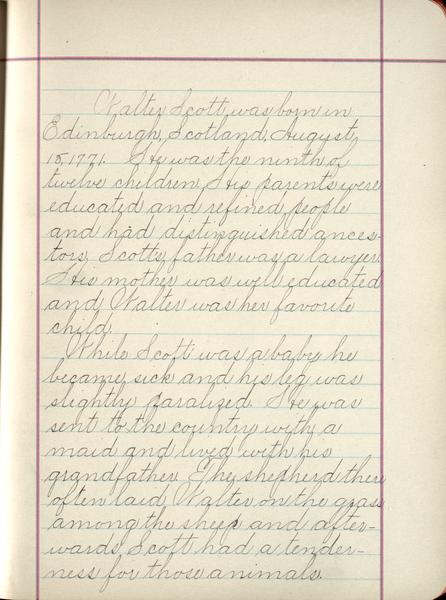 Walter Scott was born in
Edinburgh, Scotland, August,
15, 1771. He was the ninth of
twelve children, His parents were
educated and refined people
and had distinguished ances-
tors, Scotts father was a lawyer.
His mother was well educated
and Walter was her favorite
child.
While Scott was a baby he
became sick and his leg was
slightly paralized. He was
sent to the country with a
maid and lived with his
grandfather. The shepherd there
often laid Walter on the grass
among the sheep and after-
wards Scott had a tender-
ness for those animals.